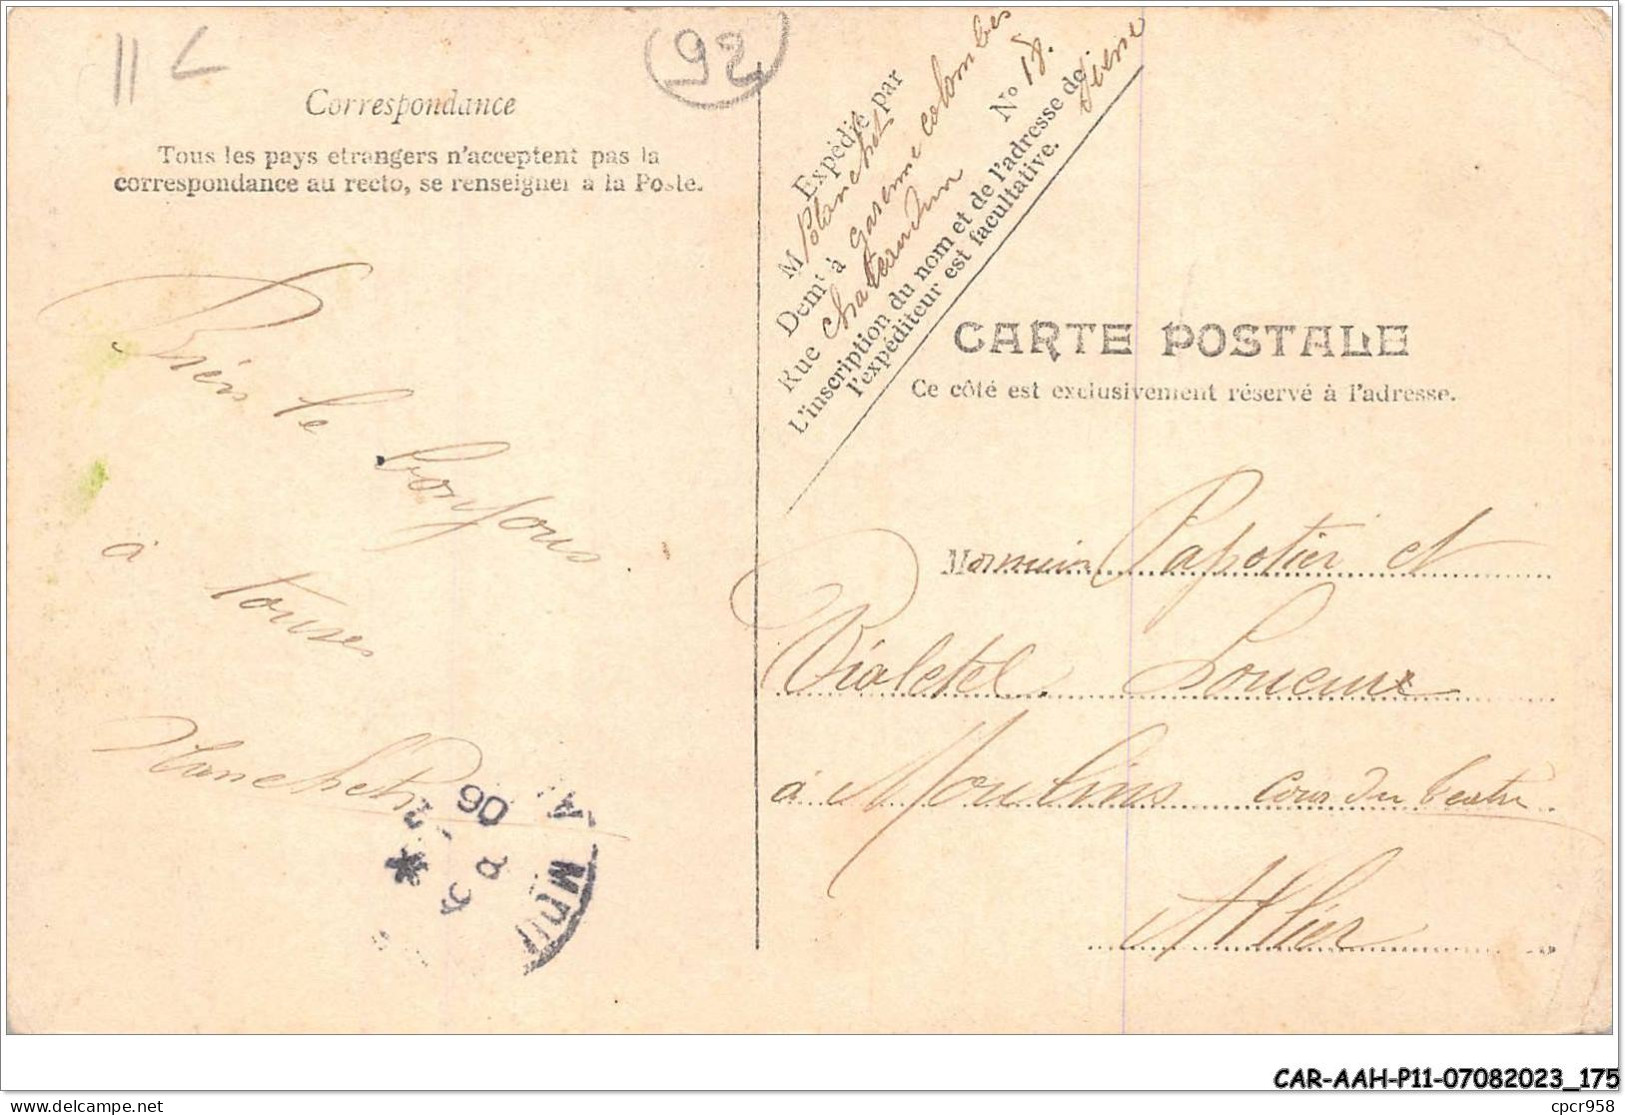 11 L
(92)
Correspondance
Tous les pays etrangers n'acceptent pas la
correspondance au recto, se renseigner a la Poste.
Expédié par
M Planchet
Demt à garenne colombes
Rue chateaudun No 18.
L'inscription du nom et de l'adresse de
l'expéditeur est facultative.
Seine
CARTE POSTALE
Ce côté est exclusivement réservé à l'adresse.
Bien le bonjour
à toutes
Planchet
Papotier et
Vialetel.
à Moulins cour du teatre
Allier
06
CAR-AAH-P11-07082023_175
cpcr958